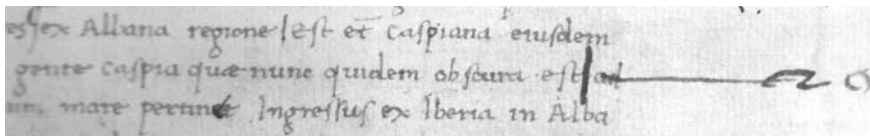 ex Albana regione Est et Caspiana eiusdem
gente Caspia quae nunc quidem obscura est ad
mare Ingressus ex Iberia in Alba